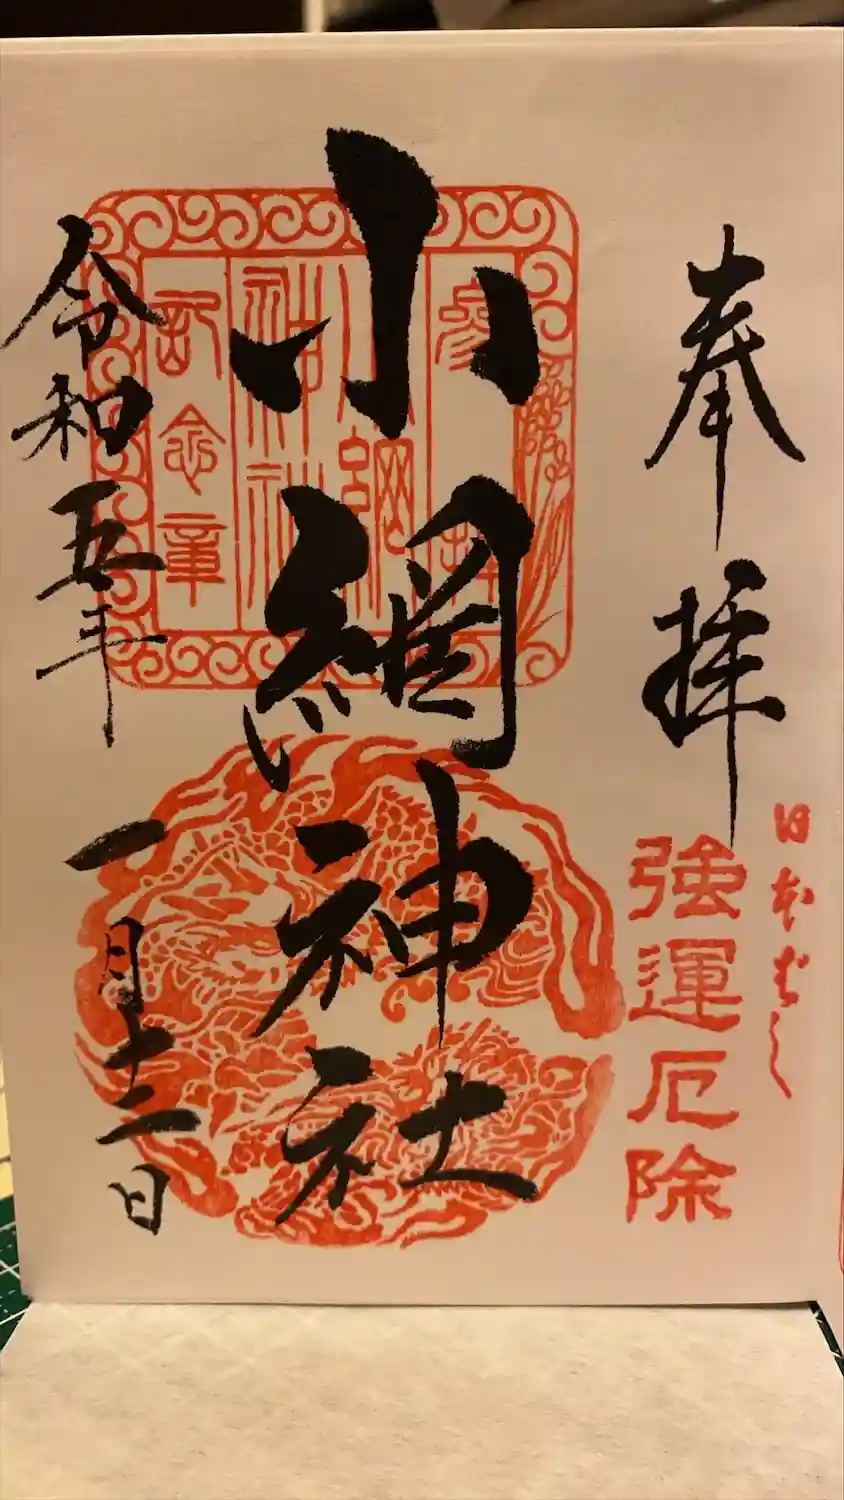 奉拝
日本ばし
強運厄除
小網神社
参拝
小網
神社
記念章
令和五年
一月十二日